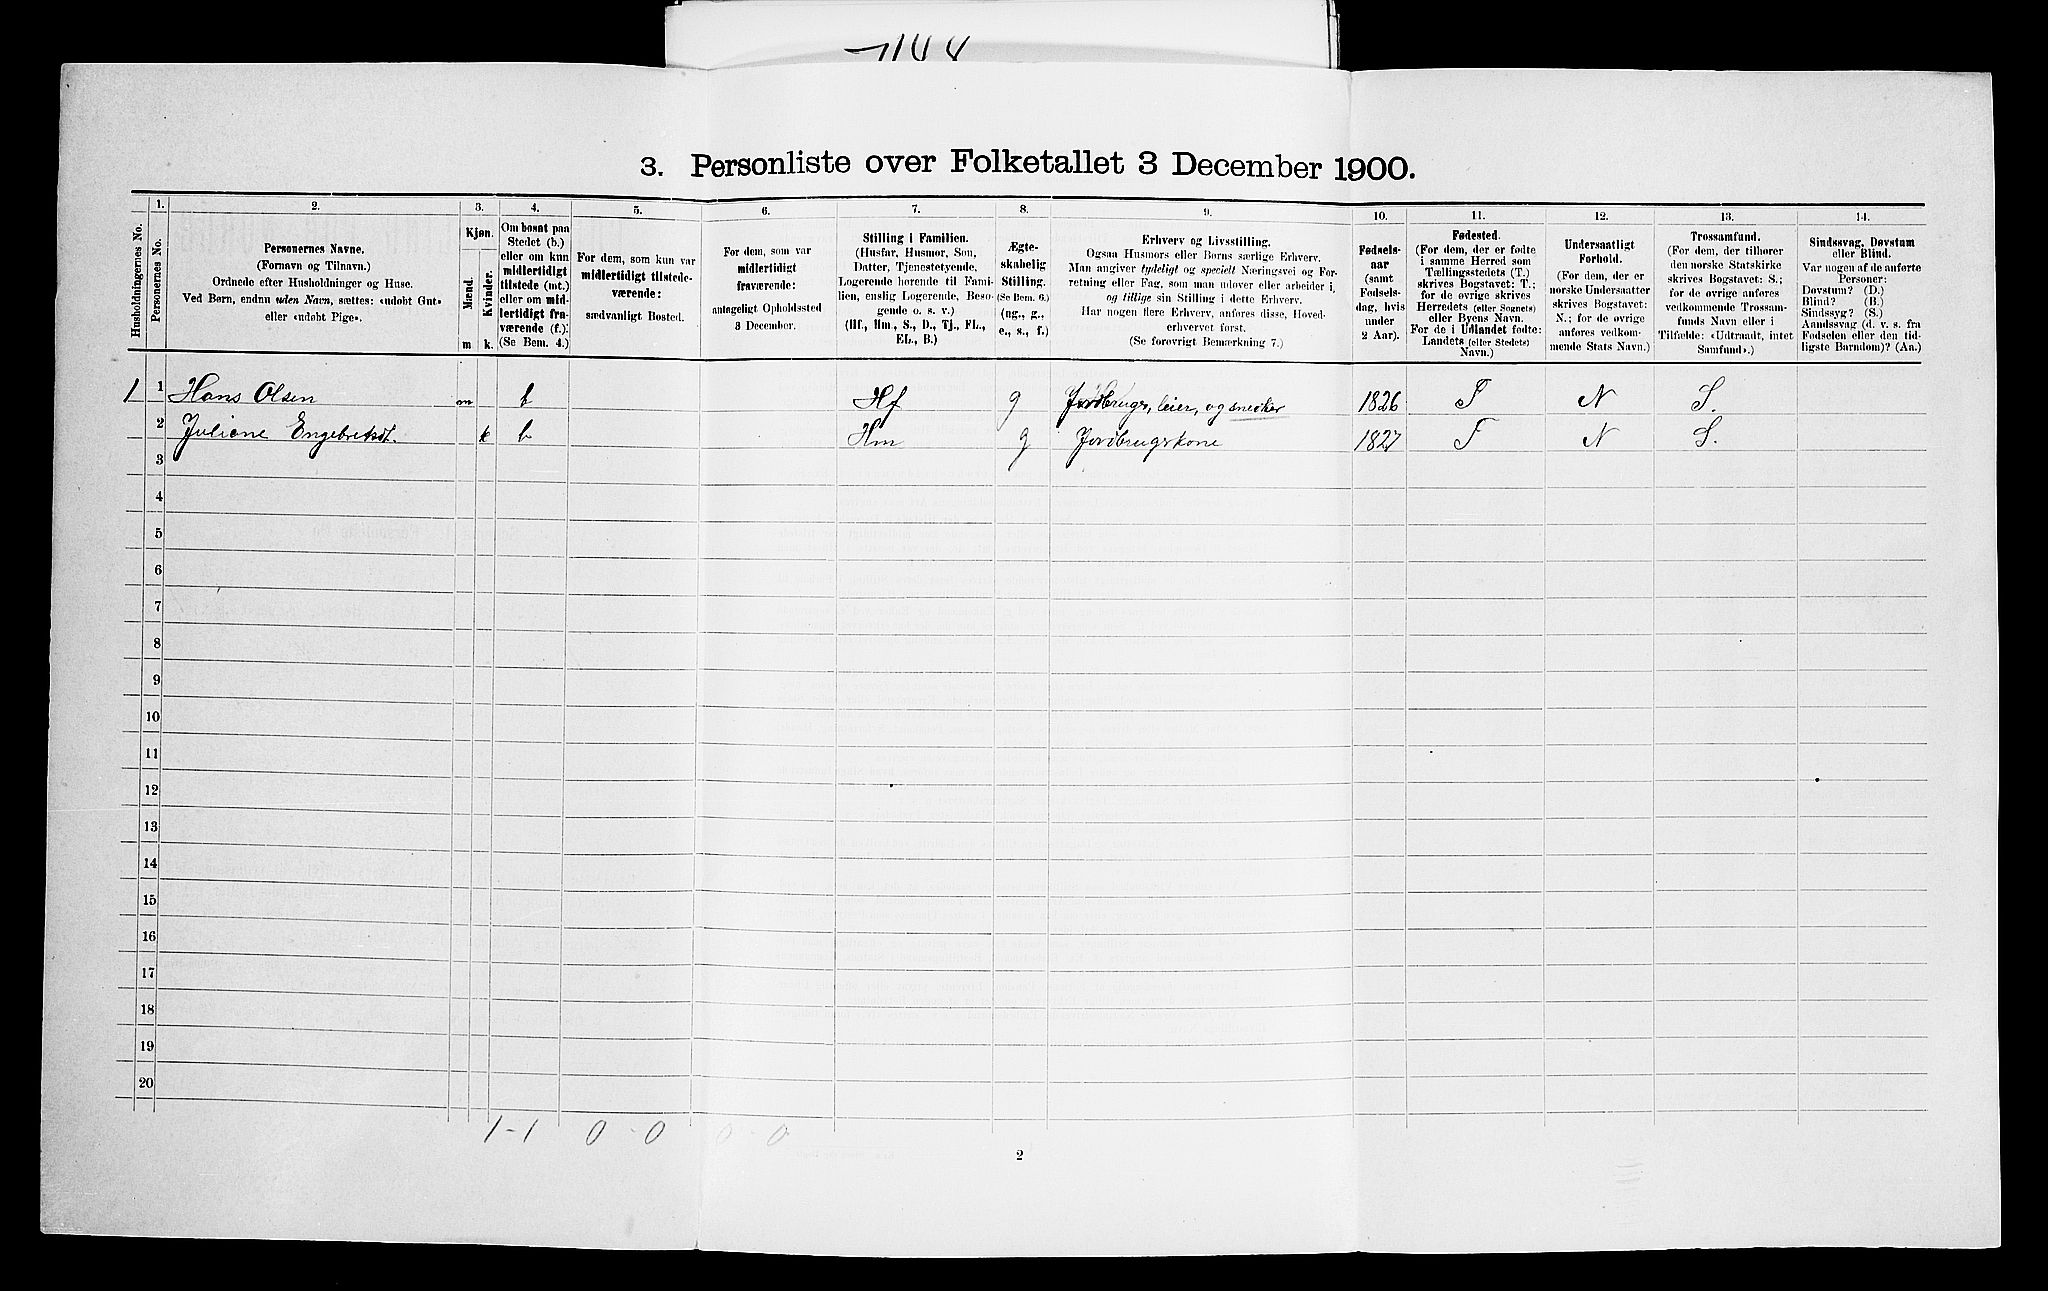 3. Personliste over Folketallet 3 December 1900.
Husholdningernes No.
1.
Personernes No.
2.
Personernes Navne.
(Fornavn og Tilnavn.)
Ordnede efter Husholdninger og Huse.
Ved Børn, endnu uden Navn, sættes: «udøbt Gut»
eller «udøbt Pige».
3.
Kjøn.
Mænd.
Kvinder.
m
k.
4.
Om bosat paa
Stedet (b.)
eller om kun
midlertidigt
tilstede (mt.)
eller om mid-
lertidigt fra-
værende (f.):
(Se Bem. 4.)
5.
For dem, som kun var
midlertidigt tilstede-
værende:
sædvanligt Bosted.
6.
For dem, som var
midlertidigt
fraværende:
antageligt Opholdssted
3 December.
7.
Stilling i Familien.
(Husfar, Husmor, Søn,
Datter, Tjenestetyende,
Logerende hørende til Fami-
lien, enslig Logerende, Besø-
gende o. s. v.)
(Hf., Hm., S., D., Tj., FL.,
EL., B.)
8.
Ægte-
skabelig
Stilling.
(Se Bem. 6.)
(ug., g.,
e., s., f.)
9.
Erhverv og Livsstilling.
Ogsaa Husmors eller Børns særlige Erhverv.
Man angiver tydeligt og specielt Næringsvei og For-
retning eller Fag, som man udøver eller arbeider i,
og tillige sin Stilling i dette Erhverv.
Har nogen flere Erhverv, anføres disse, Hoved-
erhvervet først.
(Se forøvrigt Bemærkning 7.)
10.
Fødsels-
aar
(samt
Fødsels-
dag, hvis
under
2 Aar).
11.
Fødested.
(For dem, der er fødte
i samme Herred som
Tællingsstedets (T.)
skrives Bogstavet: T.;
for de øvrige skrives
Herredets (eller Sognets)
eller Byens Navn.
For de i Udlandet fødte:
Landets (eller Stedets)
Navn.)
12.
Undersaatligt
Forhold.
(For dem, der er
norske Undersaatter
skrives Bogstavet:
N.; for de øvrige
anføres vedkom-
mende Stats Navn.)
13.
Trossamfund.
(For dem, der tilhører
den norske Statskirke
skrives Bogstavet: S.;
for de øvrige anføres
vedkommende Trossam-
funds Navn eller i
Tilfælde: «Udtraadt, intet
Samfund».)
14.
Sindssvag, Døvstum
eller Blind.
Var nogen af de anførte
Personer:
Døvstum? (D.)
Blind? (B.)
Sindssyg? (S.)
Aandssvag (d. v. s. fra
Fødselen eller den tid-
ligste Barndom)? (Aa.)
1 1 Hans Olsen m b Hf g Jordbruger, leier, og snedker 1826 T N S.
2 Juliane Engebretsdt. k b Hm g Jordbrugskone 1827 T N S.
3
4
5
6
7
8
9
10
11
12
13
14
15
16
17
18
19
20
1-1 0-0 0-0
2